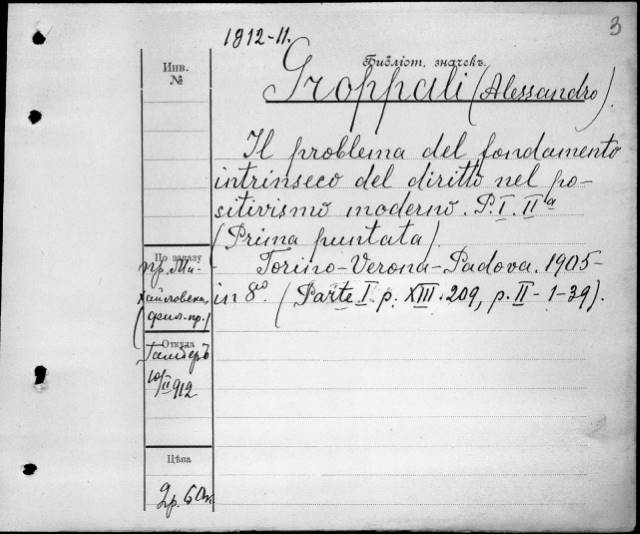 3
1912-11.
Библіот. значекъ.
Groppali (Alessandro).
Инв.
№
Il problema del fondamento
intrinseco del diritto nel po-
sitivismo moderno. P. I. IIª
(Prima puntata).
Torino-Verona-Padova. 1905-
in 8º. (Parte I p. XIII. 209, p. II - 1-39).
По заказу
пр. Ми-
хайловска
(фил. пр.)
Откуда
Гамберъ
10/II 912
Цѣна
2р. 60к